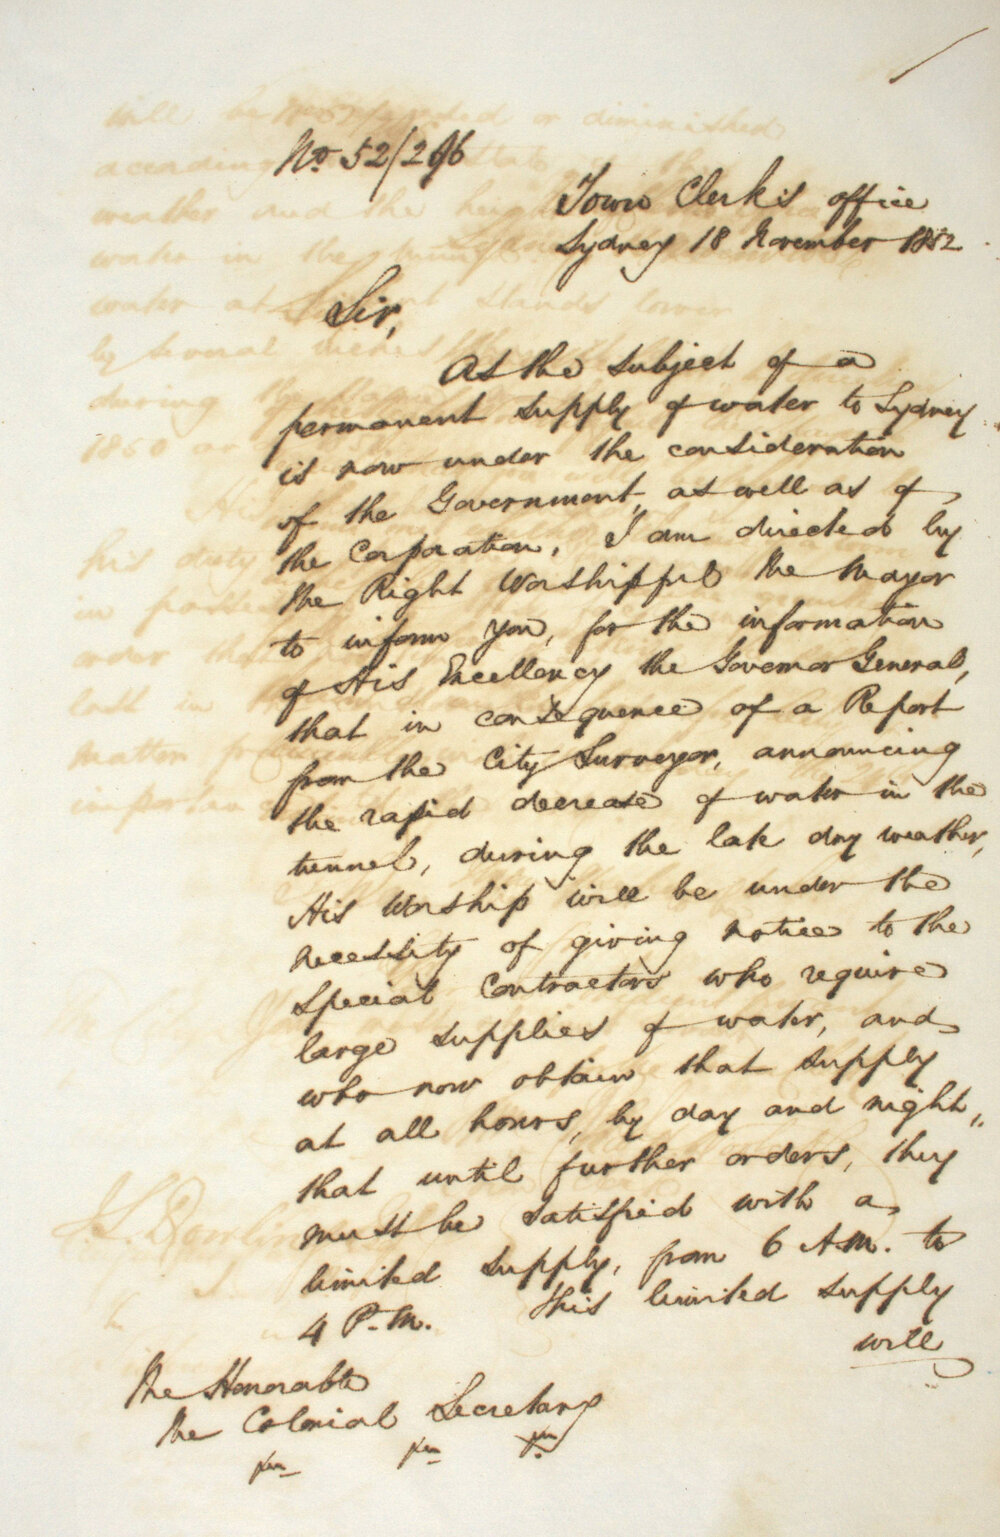 No. 52/296
Town Clerk's office
Sydney 18 November 1852
Sir,
As the subject of a
permanent supply of water to Sydney
is now under the consideration
of the Government, as well as of
the Corporation, I am directed by
the Right Worshipful the Mayor
to inform you, for the information
of His Excellency the Governor General,
that in consequence of a Report
from the City Surveyor, announcing
the rapid decrease of water in the
tunnel, during the late dry weather,
His Worship will be under the
necessity of giving notice to the
Special Contractors who require
large supplies of water, and
who now obtain that supply
at all hours, by day and night,
that until further orders, they
must be satisfied with a
limited supply, from 6 A.M. to
4 P.M. This limited supply
will
The Honorable
The Colonial Secretary